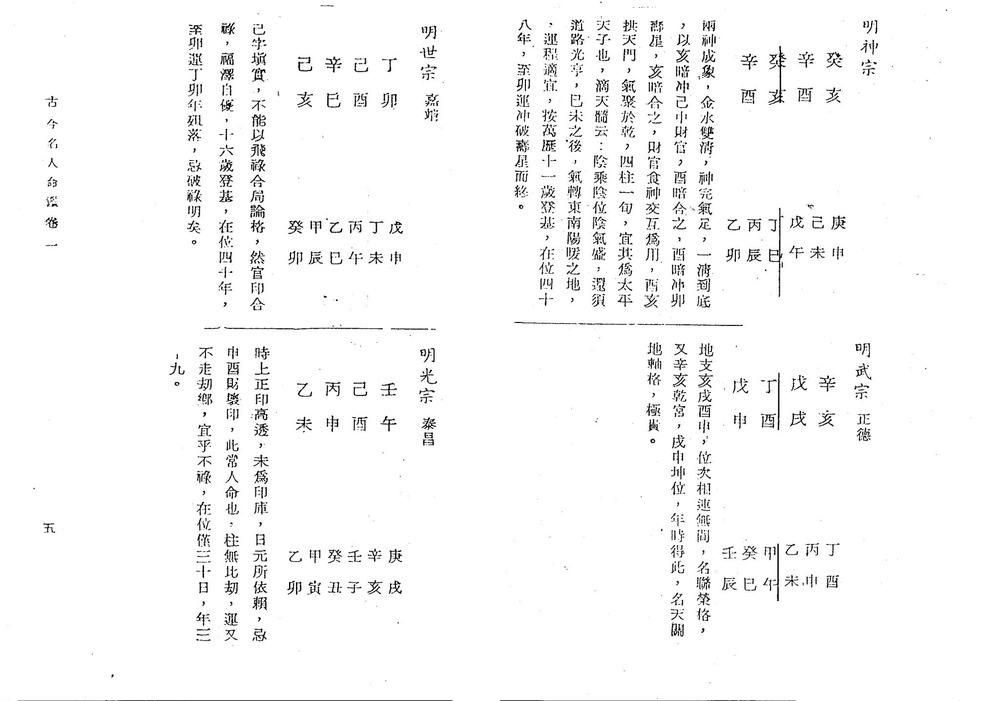 明神宗
癸亥
辛酉
癸亥
辛酉
庚申
己未
戊午
丁巳
丙辰
乙卯
兩神成象，金水雙清，神完氣足，一清到底
，以亥暗冲己中財官，酉暗合之，酉暗冲卯
壽星，亥暗合之，財官食神交互爲用，酉亥
拱天門，氣聚於乾，四柱一旬，宜其爲太平
天子也，滴天髓云：陰乘陰位陰氣盛，還須
道路光亨，巳未之後，氣轉東南陽暖之地，
，運程適宜，按萬歷十一歲登基，在位四十
八年，至卯運冲破壽星而終。
明武宗 正德
辛亥
戊戌
丁酉
戊申
丁酉
丙申
乙未
甲午
癸巳
壬辰
地支亥戌酉申，位次相連無間，名聯榮格，
又辛亥乾宮，戌申坤位，年時得此，名天關
地軸格，極貴。
明世宗 嘉靖
丁卯
己酉
辛巳
己亥
戊申
丁未
丙午
乙巳
甲辰
癸卯
己字塡實，不能以飛祿合局論格，然官印合
祿，福澤自優，十六歲登基，在位四十年，
至卯運丁卯年殂落，忌破祿明矣。
明光宗 泰昌
壬午
己酉
丙申
乙未
庚戌
辛亥
壬子
癸丑
甲寅
乙卯
時上正印高透，未爲印庫，日元所依賴，忌
申酉財壞印，此常人命也，柱無比劫，運又
不走劫鄉，宜乎不祿，在位僅三十日，年三
十九。
古今名人命鑑卷一
五